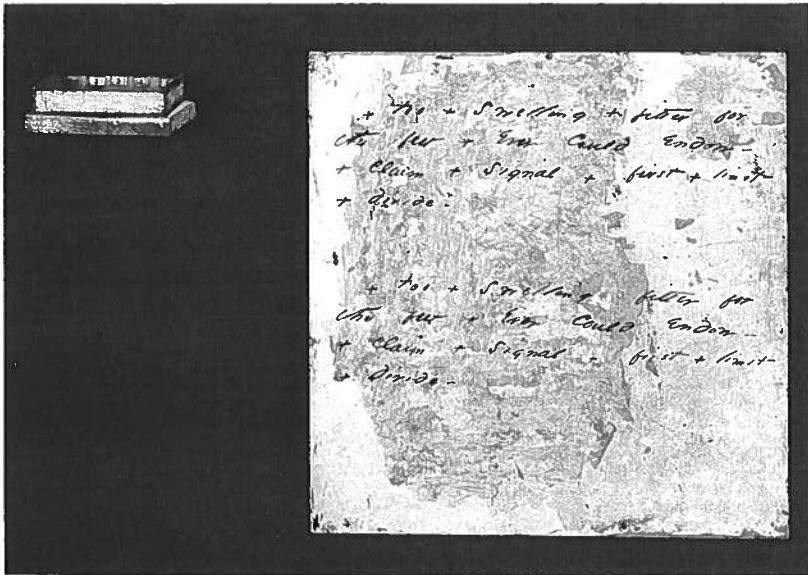 + too + Swelling + fitter for
the few + Ever Could Endow –
+ Claim + Signal + first + limit –
+ divide –
+ too + Swelling fitter for
the few + Ever Could Endow –
+ Claim + Signal – first + limit –
+ Divide –